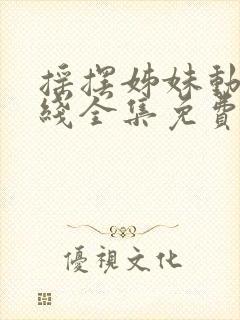 揺摆姊妹動
綫全集免費
優視文化